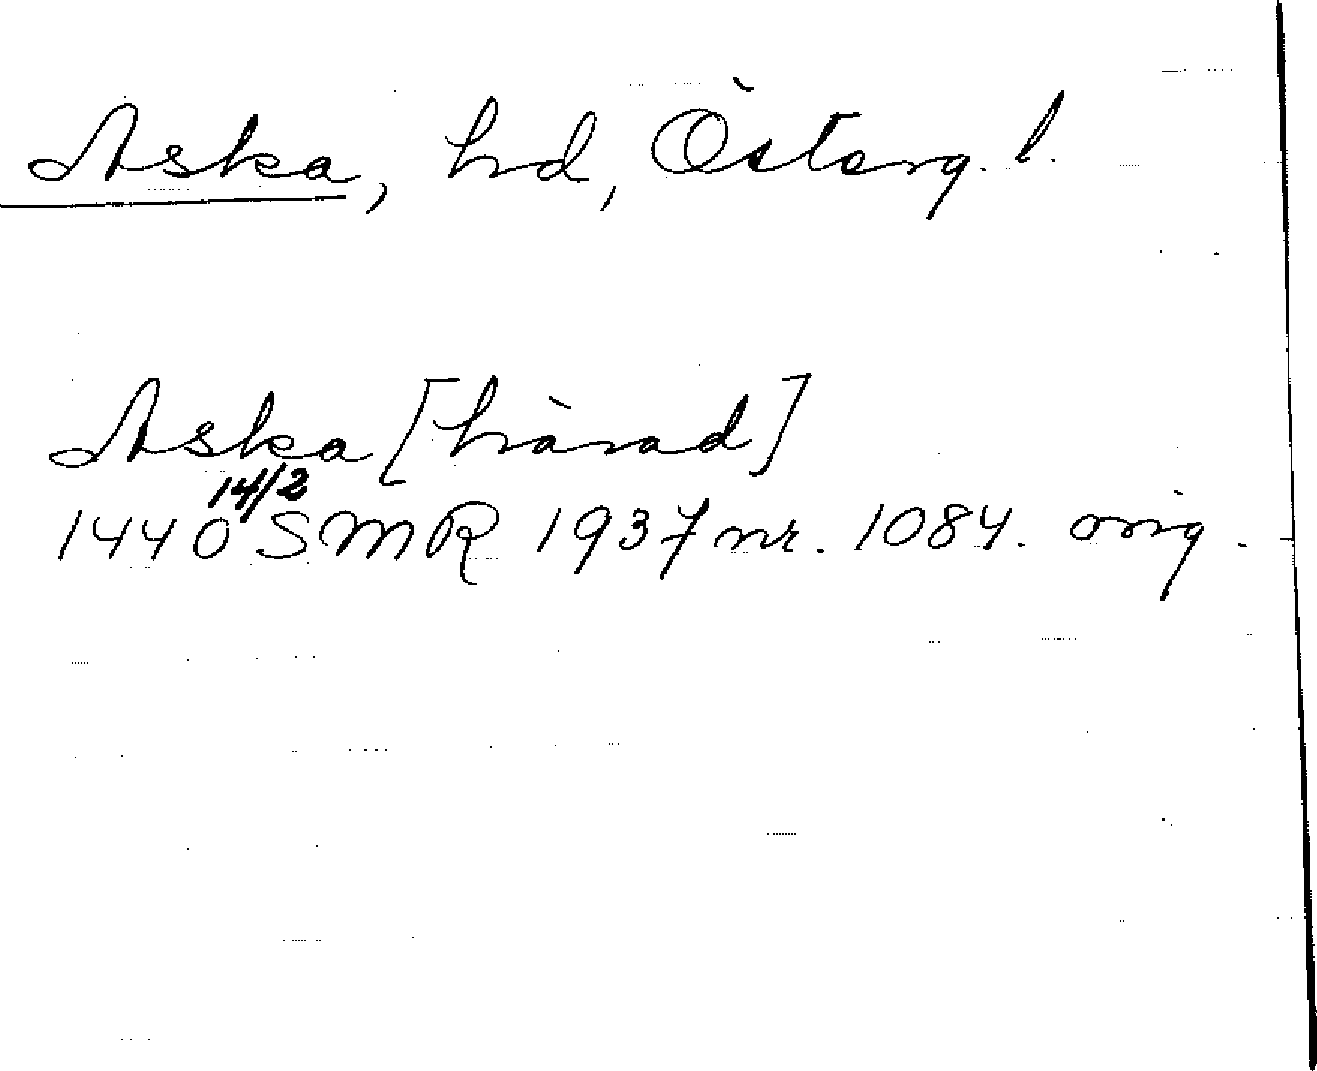 Aska, hd, Österg. l.
Aska [härad]
14/2
1440 SMR 1937 nr. 1084. orig.